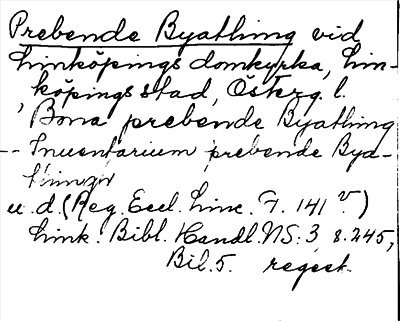 Prebende Byathing vid
Linköpings domkyrka, Lin-
köpings stad, Österg. l.
, Bona prebende Byathing
-- Inuentarium prebende Bya-
thingn
u. d. (Reg. Eccl. Linc. F. 141 v.)
Link. Bibl. Handl. NS: 3, s. 245,
Bil. 5. regest.